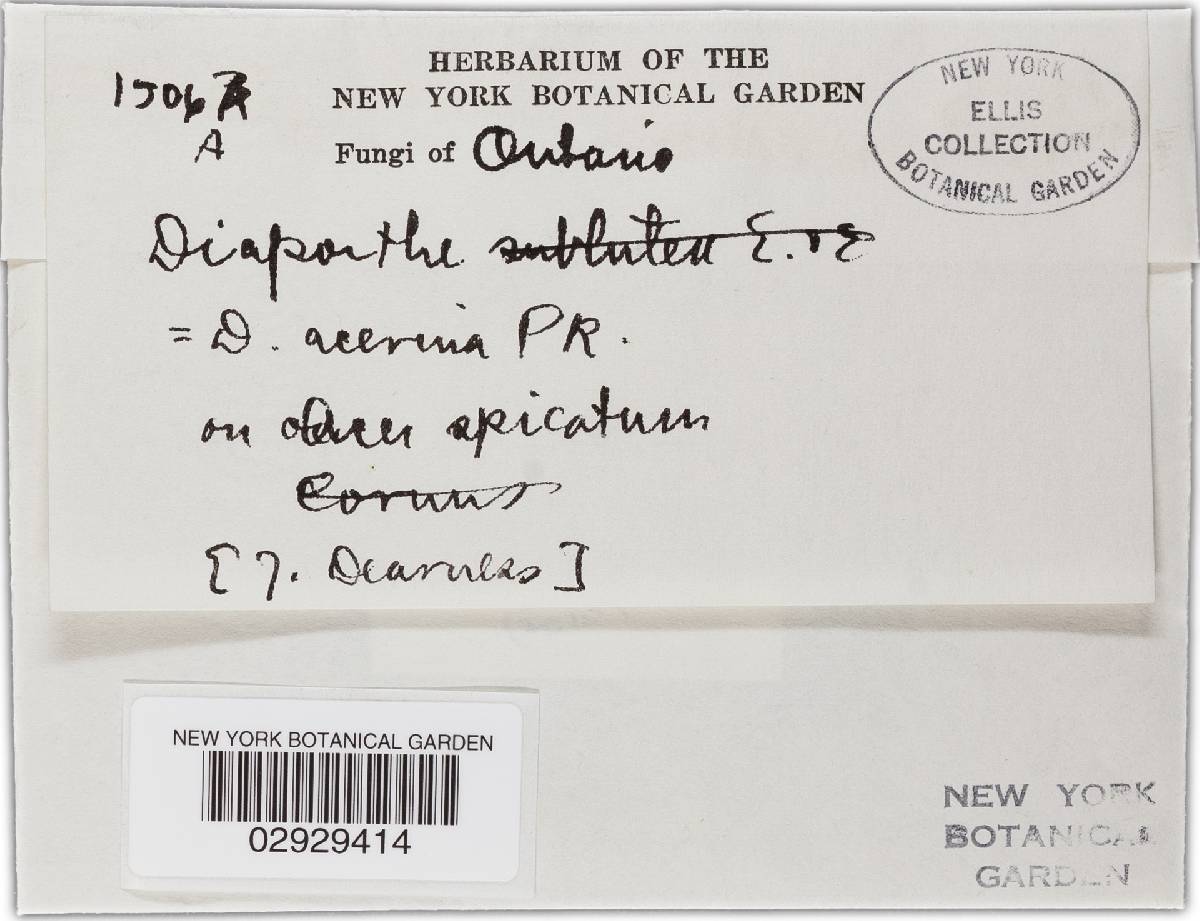 HERBARIUM OF THE
NEW YORK BOTANICAL GARDEN
Fungi of Ontario
A
NEW YORK
ELLIS
COLLECTION
BOTANICAL GARDEN
Diaporthe sublutea E. & E
= D. acerina PK.
on Acer spicatum
Cornus
[J. Dearness]
NEW YORK BOTANICAL GARDEN
02929414
NEW YORK
BOTANICAL
GARDEN